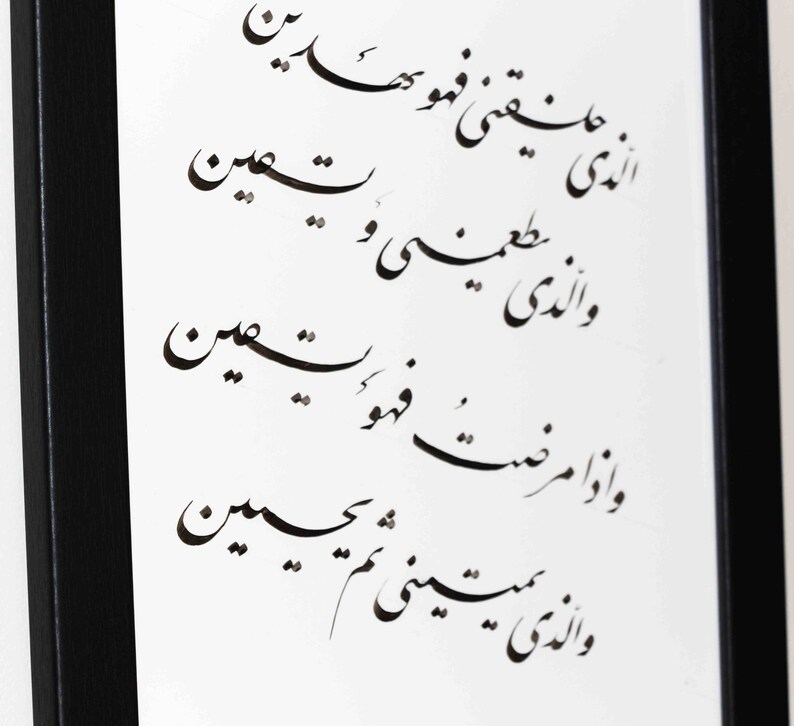 الّذی خلقنی فهو یهدین
والّذی یطعمنی وَ یسقین
واذا مرضتُ فهوَ یسقین
والّذی یمیتنی ثم یحیین